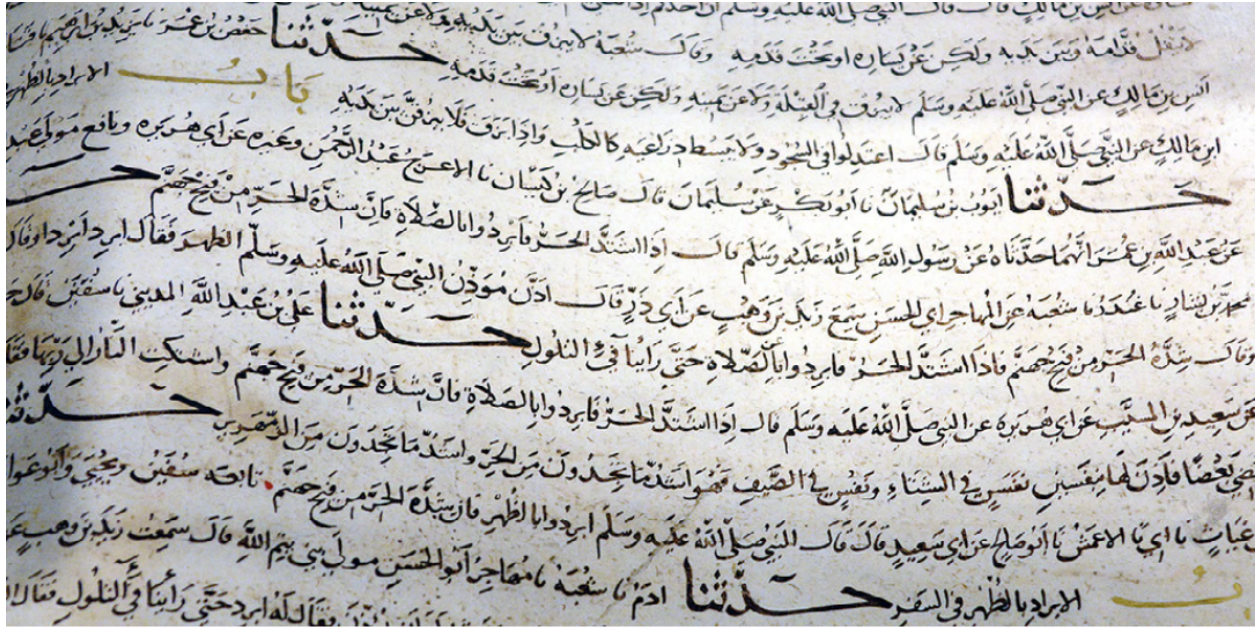 لا يتفل قدامه وبين يديه ولكن عن يساره او تحت قدمه وقال شعبة لا يبزق بين يديه ولا عن يمينه
حدثنا حفص بن عمر نا يزيد بن ابراهيم نا قتادة
انس بن مالك عن النبي صلى الله عليه وسلم لا يبزق في القبلة ولا عن يمينه ولكن عن يساره او تحت قدمه
ابن مالك عن النبي صلى الله عليه وسلم قال اعتدلوا في السجود ولا يبسط ذراعيه كالكلب واذا بزق فلا يبزقن بين يديه باب الابراد بالظهر
حدثنا ايوب بن سليمان نا ابو بكر عن سليمان قال صالح بن كيسان نا الاعرج عبد الرحمن وغيره عن ابي هريره ونافع مولى عبد
عن عبد الله بن عمر انهما حدثاه عن رسول الله صلى الله عليه وسلم قال اذا اشتد الحر فابردوا بالصلاة فان شدة الحر من فيح جهنم
محمد بن بشار نا غندر نا شعبة عن المهاجر ابي الحسن سمع زيد بن وهب عن ابي ذر قال اذن مؤذن النبي صلى الله عليه وسلم الظهر فقال ابرد ابرد او قال
وقال شدة الحر من فيح جهنم فاذا اشتد الحر فابردوا بالصلاة حتى راينا فيء التلول حدثنا علي بن عبد الله المديني نا سفين قال
عن سعيد بن المسيب عن ابي هريرة عن النبي صلى الله عليه وسلم قال اذا اشتد الحر فابردوا بالصلاة فان شدة الحر من فيح جهنم واشتكت النار الى ربها
بعضا فاذن لها بنفسين نفس في الشتاء ونفس في الصيف فهو اشد ما تجدون من الحر واشد ما تجدون من الزمهرير حدثنا
غياث نا ابي نا الاعمش نا ابو صالح عن ابي سعيد قال قال النبي صلى الله عليه وسلم ابردوا بالظهر فان شدة الحر من فيح جهنم تابعه سفين ويحيى وابو عوانة
الابراد بالظهر في السفر حدثنا ادم نا شعبة نا مهاجر ابو الحسن مولى بني تيم الله قال سمعت زيد بن وهب
فقال له ابرد حتى راينا فيء التلول فقال